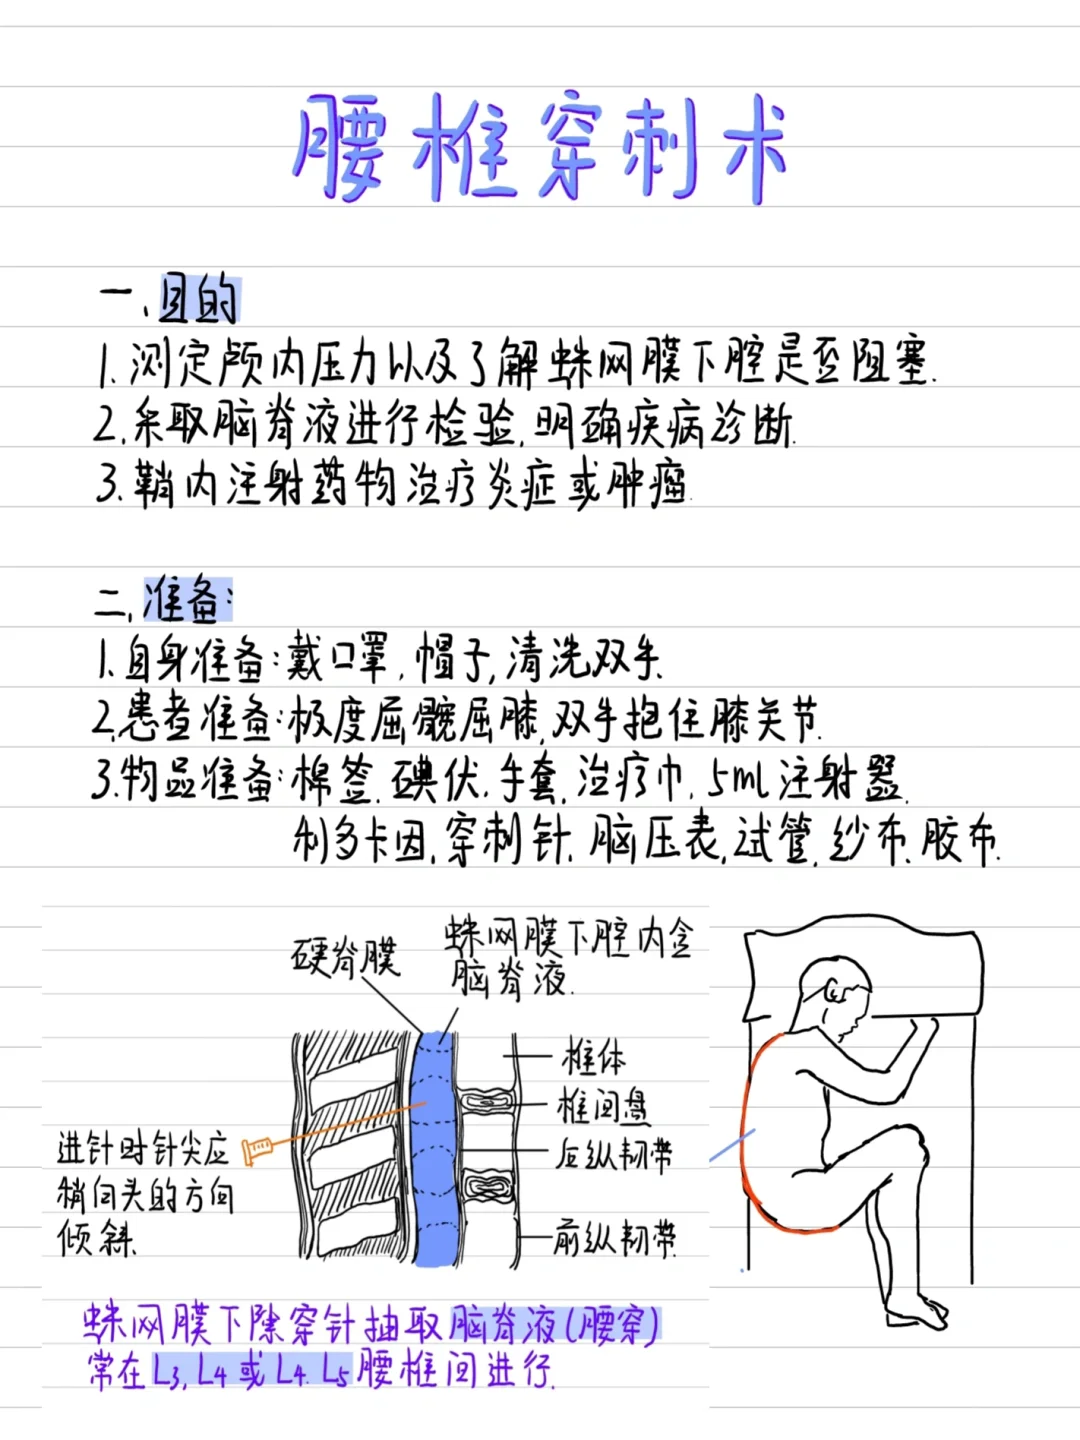 腰椎穿刺术
一、目的
1.测定颅内压力以及了解蛛网膜下腔是否阻塞.
2.采取脑脊液进行检验,明确疾病诊断.
3.鞘内注射药物治疗炎症或肿瘤.
二、准备:
1.自身准备:戴口罩,帽子,清洗双手.
2.患者准备:极度屈髋屈膝,双手抱住膝关节.
3.物品准备:棉签.碘伏.手套.治疗巾.5ml注射器.
利多卡因.穿刺针.脑压表,试管.纱布.胶布.
硬脊膜
蛛网膜下腔内含
脑脊液.
椎体
椎间盘
后纵韧带
前纵韧带
进针时针尖应
稍向头的方向
倾斜.
蛛网膜下隙穿针抽取脑脊液(腰穿)
常在L3,L4或L4.L5腰椎间进行.